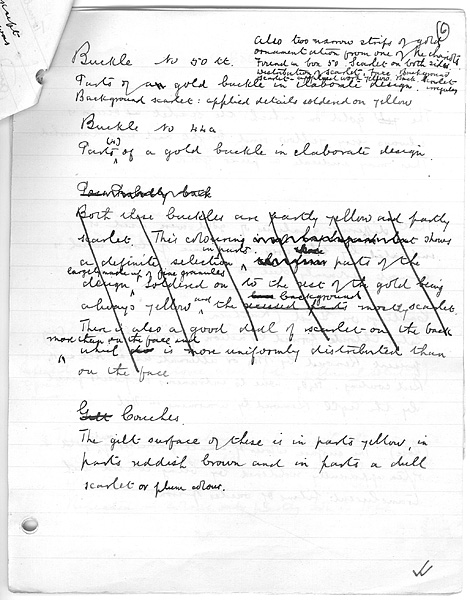 6
Also two narrow strips of gold
ornamentation from one of the chariots
Found in box 50. Scarlet on both sides
Buckle No 50 tt.
distribution of scarlet. Face Background
scarlet applied work yellow. Back Scarlet
irregular
Parts of a gold buckle in elaborate design.
Background scarlet: applied details soldered on yellow
Buckle No 44a
Parts (4) of a gold buckle in elaborate design.
Both these buckles are partly yellow and partly
scarlet. This colouring but shows
a definite selection in parts parts of the
design largely made up of fine granules soldered on to the rest of the gold being
always yellow and the background mostly scarlet.
There is also a good deal of scarlet on the back
more than on the face and
which is more uniformly distributed than
on the face
Gilt Couches.
The gilt surface of these is in parts yellow, in
parts reddish brown and in parts a dull
scarlet or plum colour.